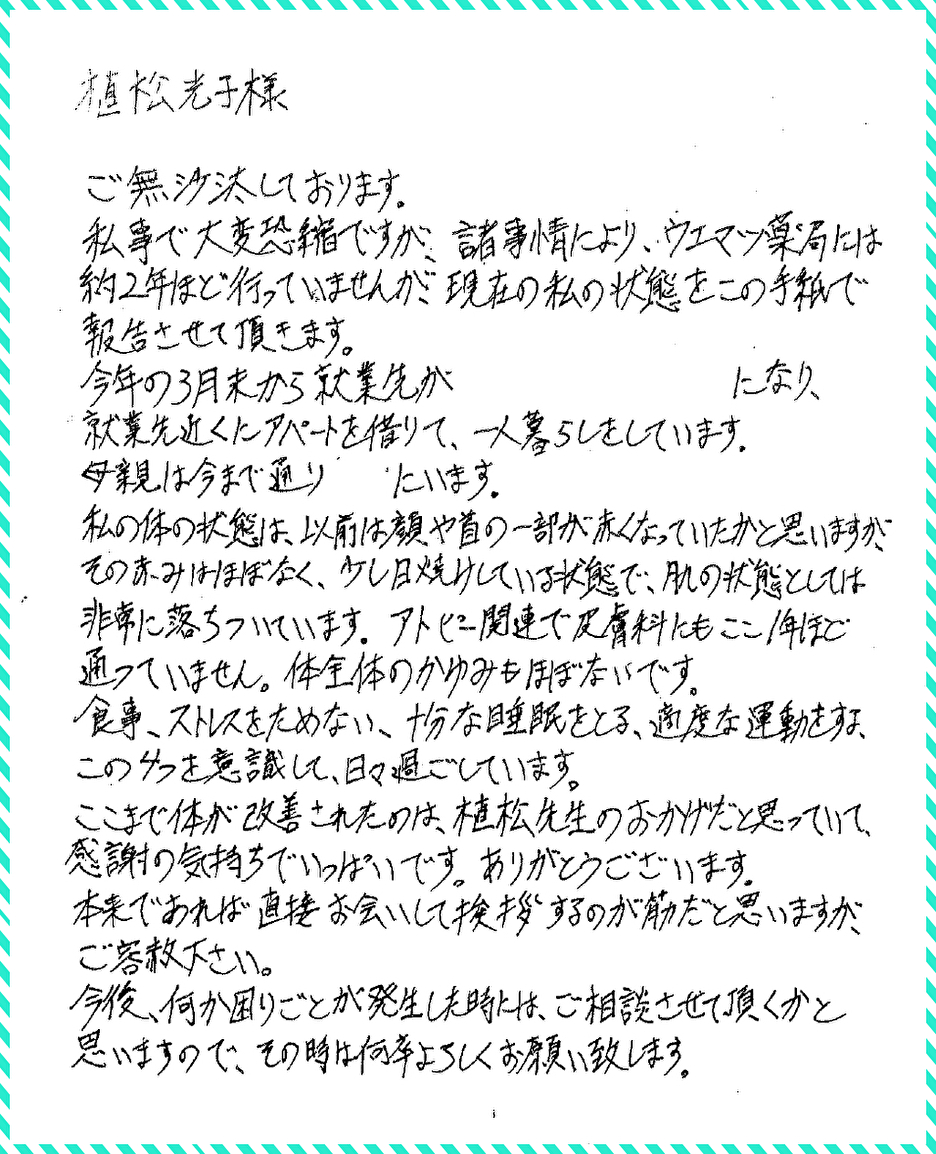 植松光子様
ご無沙汰しております。
私事で大変恐縮ですが、諸事情により、ウエマツ薬局には
約2年ほど行っていませんが、現在の私の状態をこの手紙で
報告させて頂きます。
今年の3月末から就業先が になり、
就業先近くにアパートを借りて、一人暮らしをしています。
母親は今まで通り にいます。
私の体の状態は、以前は顔や首の一部が赤くなっていたかと思いますが、
その赤みはほぼなく、少し日焼けしている状態で、肌の状態としては
非常に落ちついています。アトピー関連で皮膚科にもここ1年ほど
通っていません。体全体のかゆみもほぼないです。
食事、ストレスをためない、十分な睡眠をとる、適度な運動をする、
この4つを意識して、日々過ごしています。
ここまで体が改善されたのは、植松先生のおかげだと思っていて、
感謝の気持ちでいっぱいです。ありがとうございます。
本来であれば直接お会いして挨拶するのが筋だと思いますが、
ご容赦下さい。
今後、何か困りごとが発生した時には、ご相談させて頂くかと
思いますので、その時は何卒よろしくお願い致します。